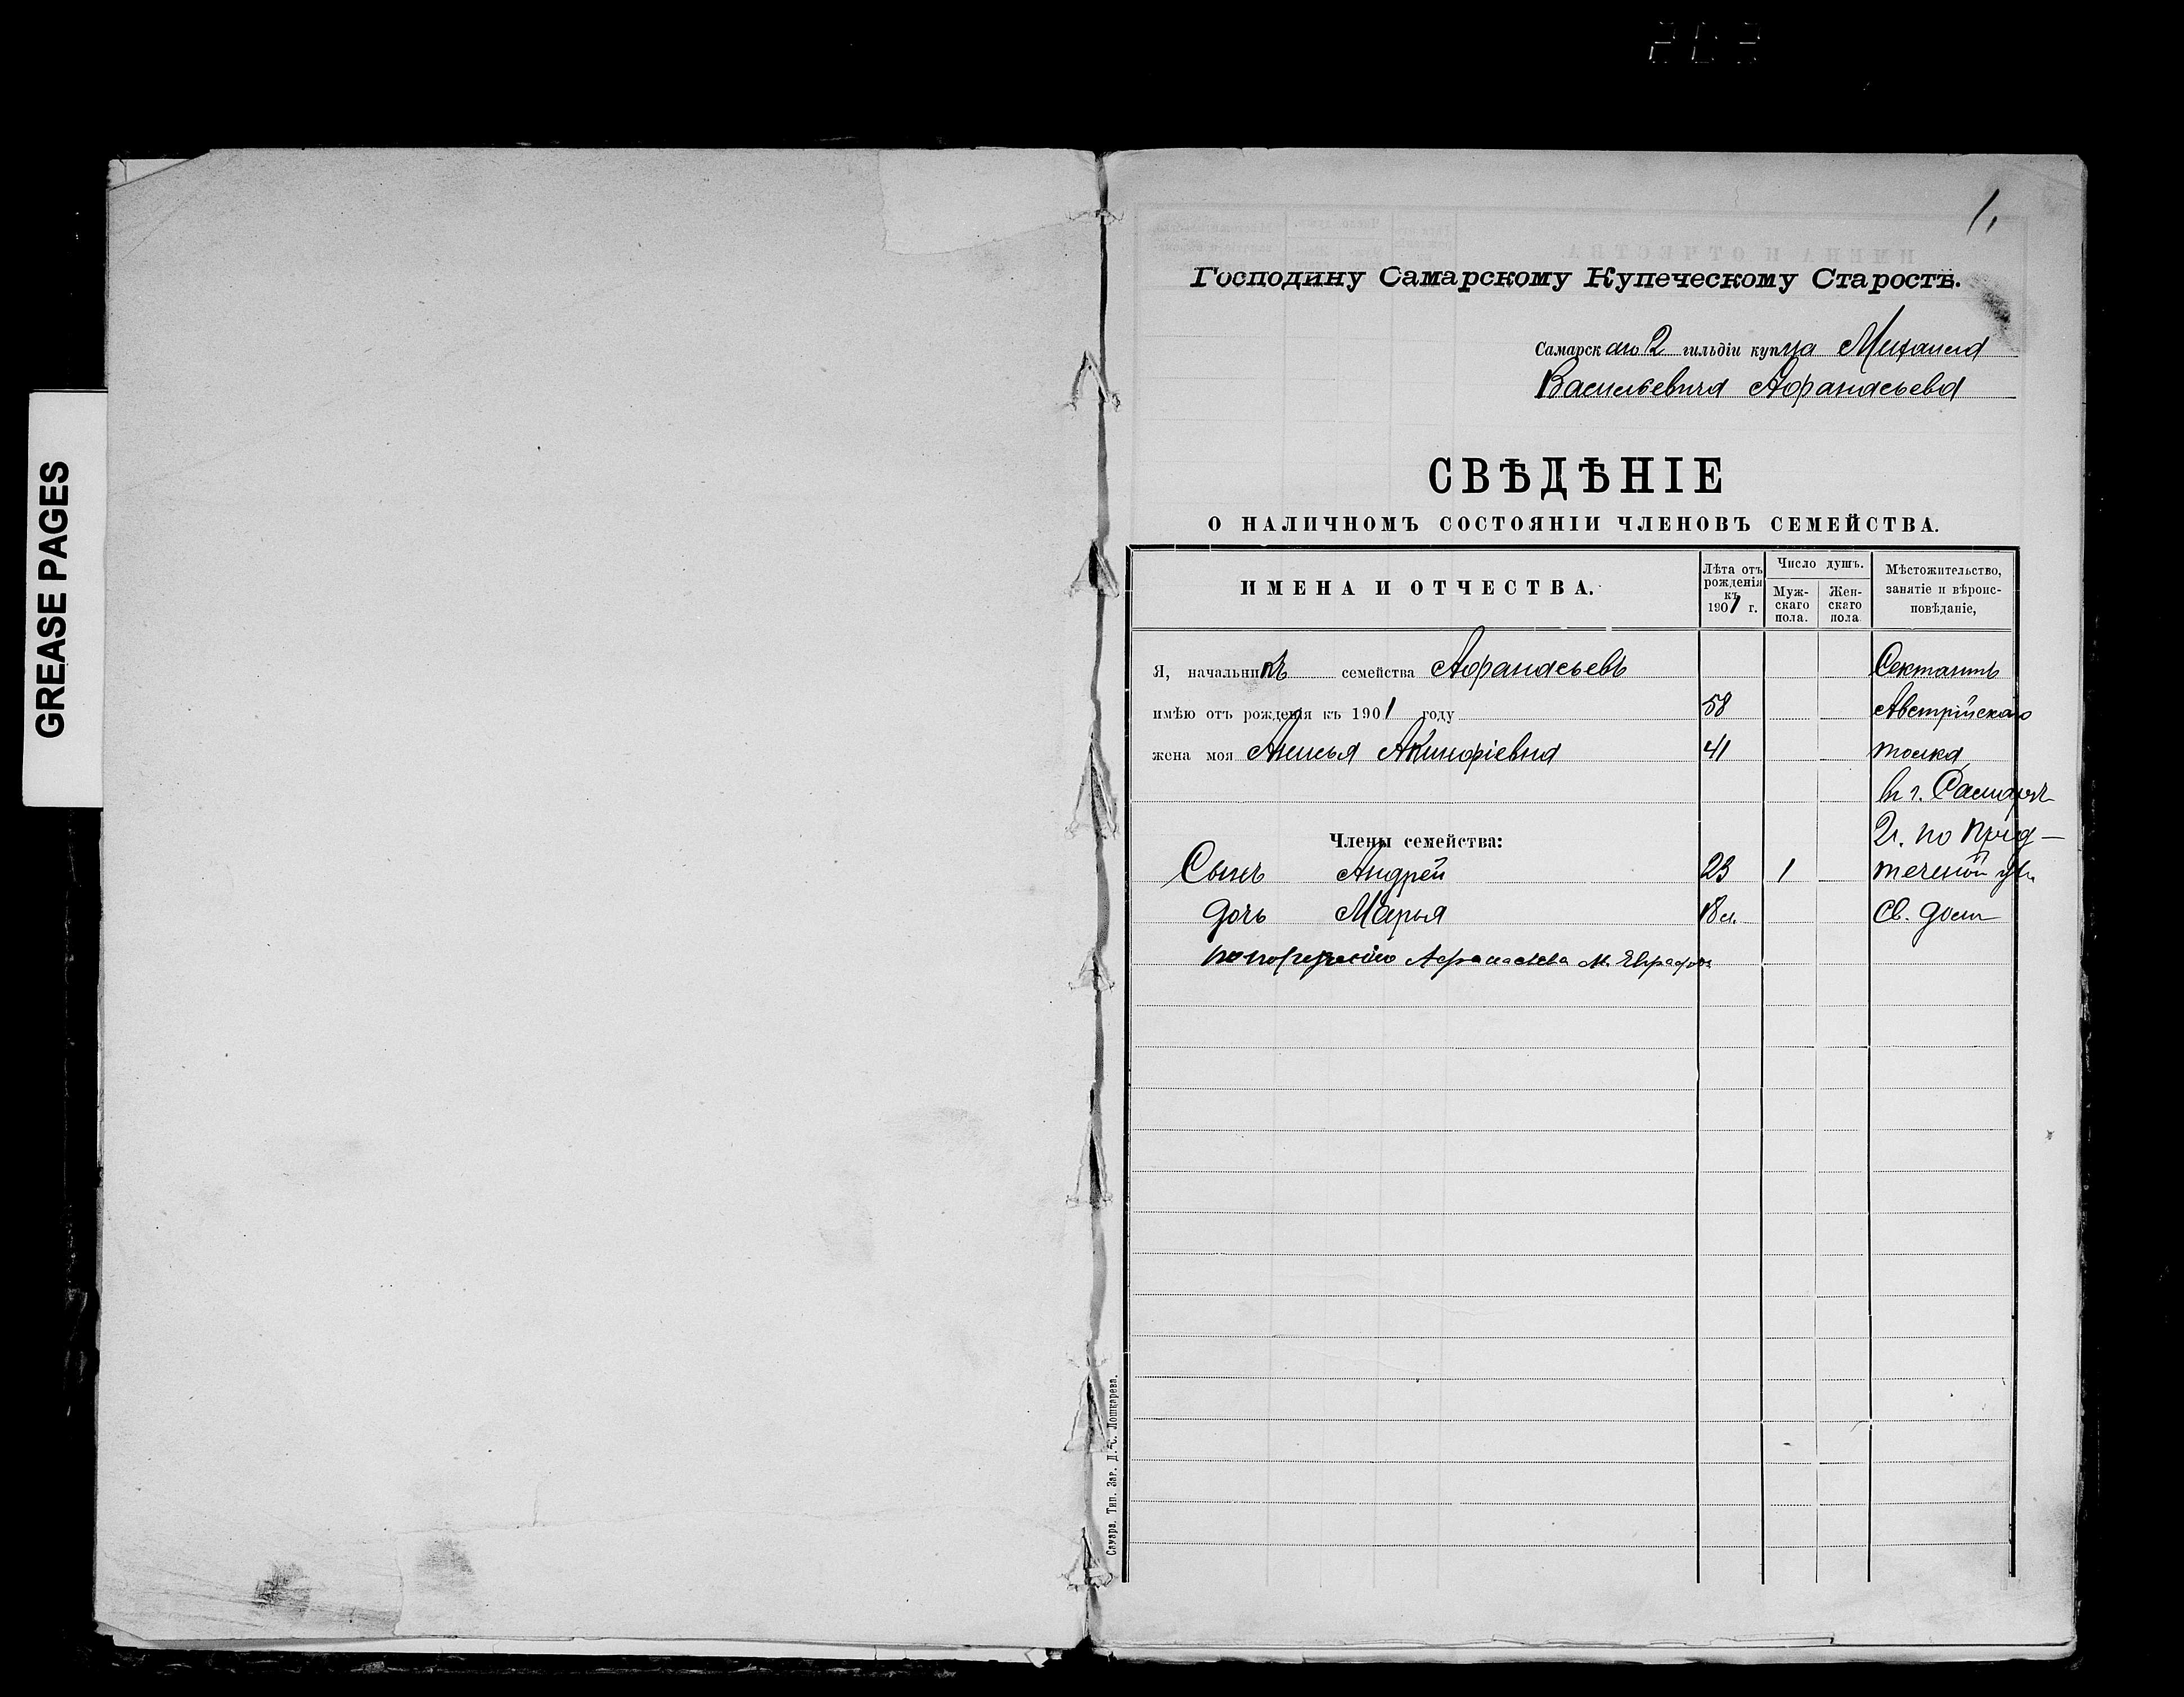 GREASE PAGES
1,
Господину Самарскому Купеческому Старостѣ.
Самарскаго 2 гильдіи купца Михаила
Васильевича Афанасьева
СВѢДѢНІЕ
О НАЛИЧНОМЪ СОСТОЯНІИ ЧЛЕНОВЪ СЕМЕЙСТВА.
ИМЕНА И ОТЧЕСТВА.
Лѣта отъ рожденія къ 1901 г.
Число душъ.
Мужскаго пола.
Женскаго пола
Мѣстожительство, занятіе и вѣроисповѣданіе,
Я, начальникъ семейства Афанасьевъ Сектантъ
имѣю отъ рожденія къ 1901 году 58 Австрійскаго
жена моя Анисья Акинфіевна 41 толка
въ г. Самарѣ
Члены семейства: 2ч. по Пред-
Сынъ Андрей 23 1 теченской ул.
дочь Марья 18 л. св. домъ
по порученію Афанасьева М.
Самара. Тип. Заг. Д. С. Лошкарева.